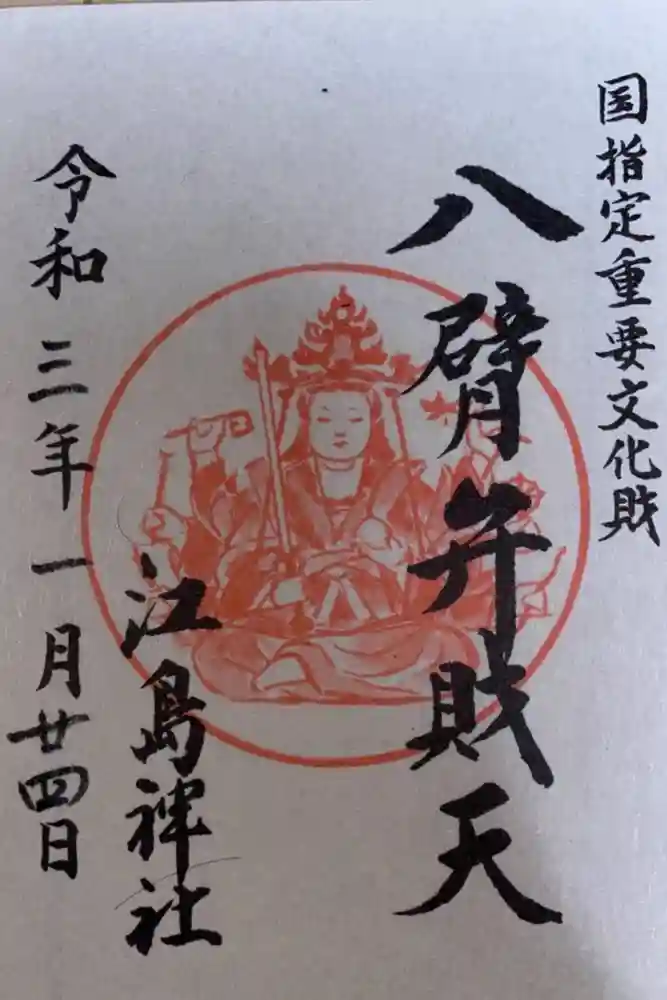 国指定重要文化財
八臂弁財天
江島神社
令和三年一月廿四日